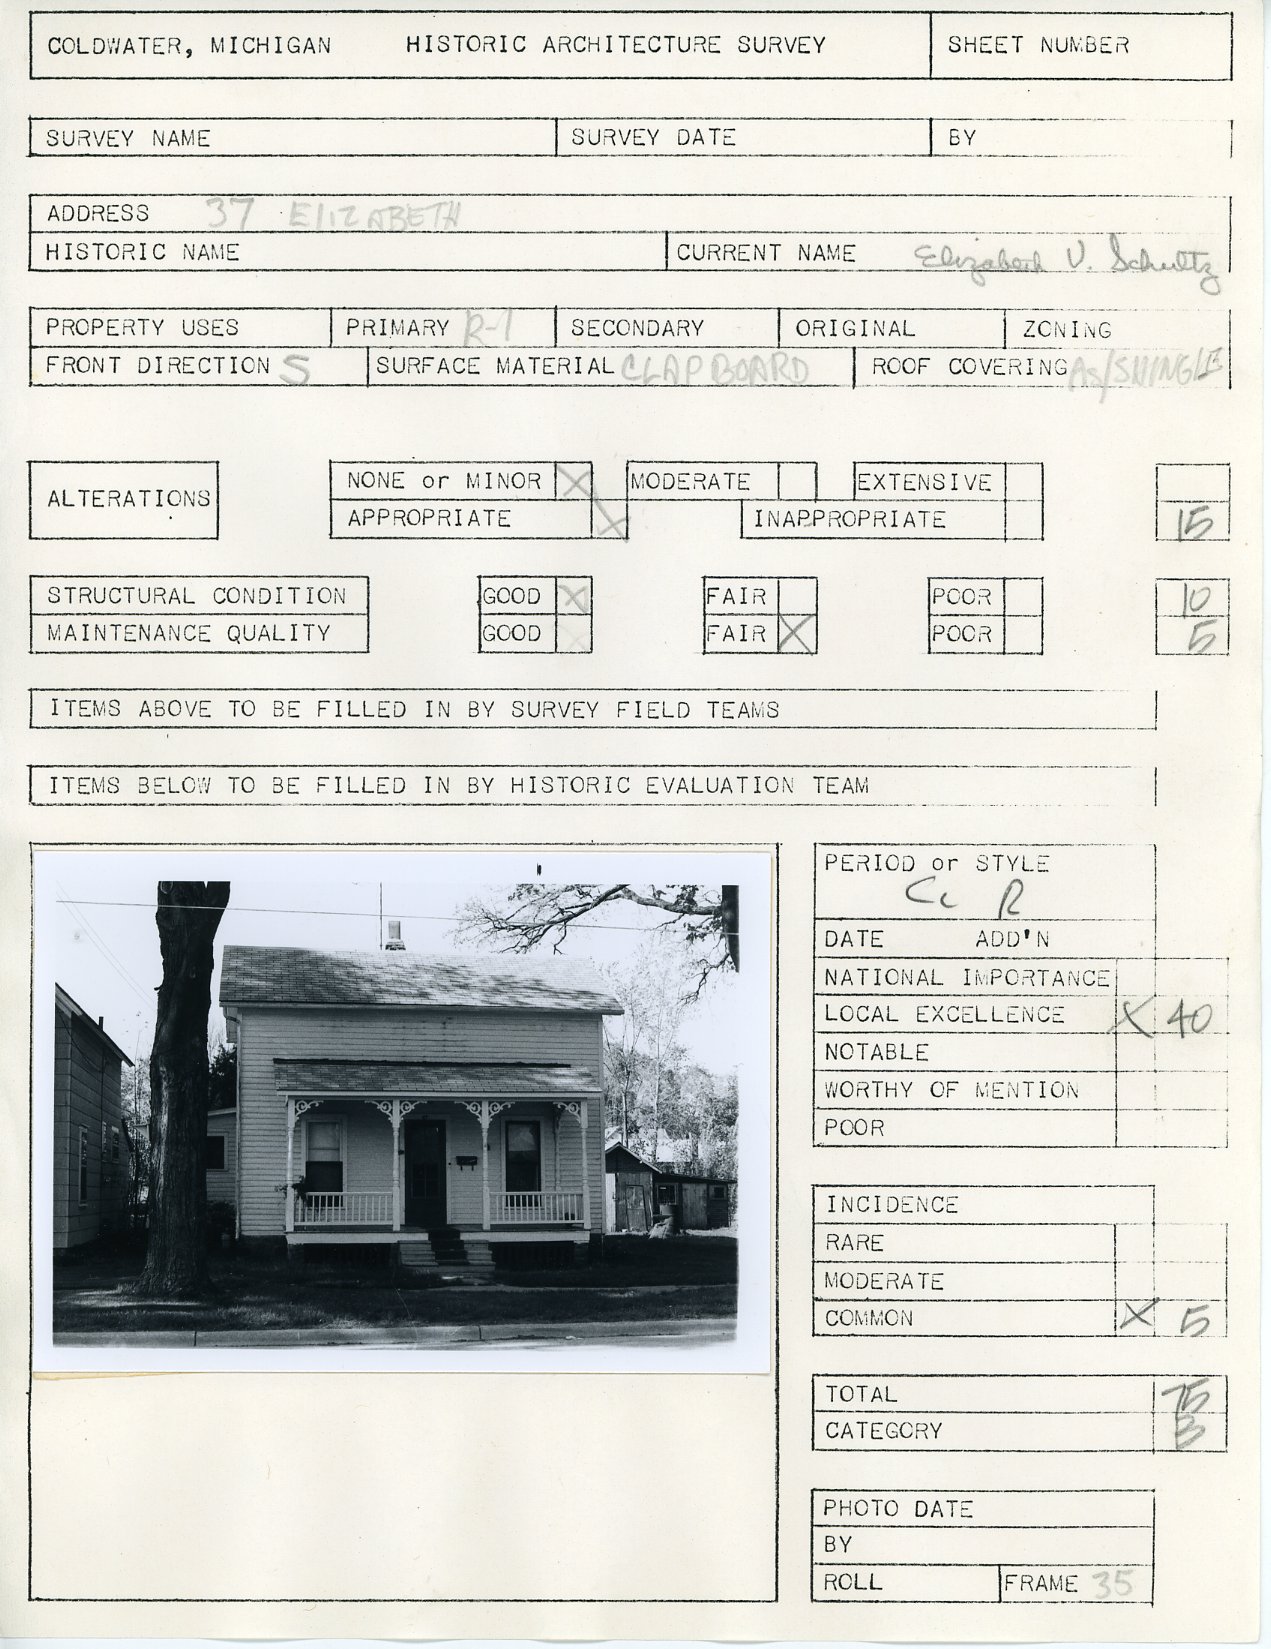 COLDWATER, MICHIGAN HISTORIC ARCHITECTURE SURVEY SHEET NUMBER
SURVEY NAME SURVEY DATE BY
ADDRESS 37 ELIZABETH
HISTORIC NAME CURRENT NAME Elizabeth V. Schultz
PROPERTY USES PRIMARY R-1 SECONDARY ORIGINAL ZONING
FRONT DIRECTION S SURFACE MATERIAL CLAPBOARD ROOF COVERING AS/SHINGLE
ALTERATIONS NONE or MINOR X MODERATE EXTENSIVE
APPROPRIATE X INAPPROPRIATE 15
STRUCTURAL CONDITION GOOD X FAIR POOR 10
MAINTENANCE QUALITY GOOD FAIR X POOR 5
ITEMS ABOVE TO BE FILLED IN BY SURVEY FIELD TEAMS
ITEMS BELOW TO BE FILLED IN BY HISTORIC EVALUATION TEAM
PERIOD or STYLE
R
DATE ADD'N
NATIONAL IMPORTANCE
LOCAL EXCELLENCE X 40
NOTABLE
WORTHY OF MENTION
POOR
INCIDENCE
RARE
MODERATE
COMMON X 5
TOTAL 75
CATEGORY B
PHOTO DATE
BY
ROLL FRAME 35